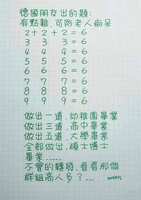 德國朋友出的題:
有點難,可防老人痴呆
2+2+2=6
3 3 3=6
4 4 4=6
5 5 5=6
6 6 6=6
7 7 7=6
8 8 8=6
9 9 9=6
做出一道,幼稚園畢業
做出三道,高中畢業
做出五道,大學畢業
全部做出,碩士博士
畢業......
不管的轉發,看看那個
群組高人多?....